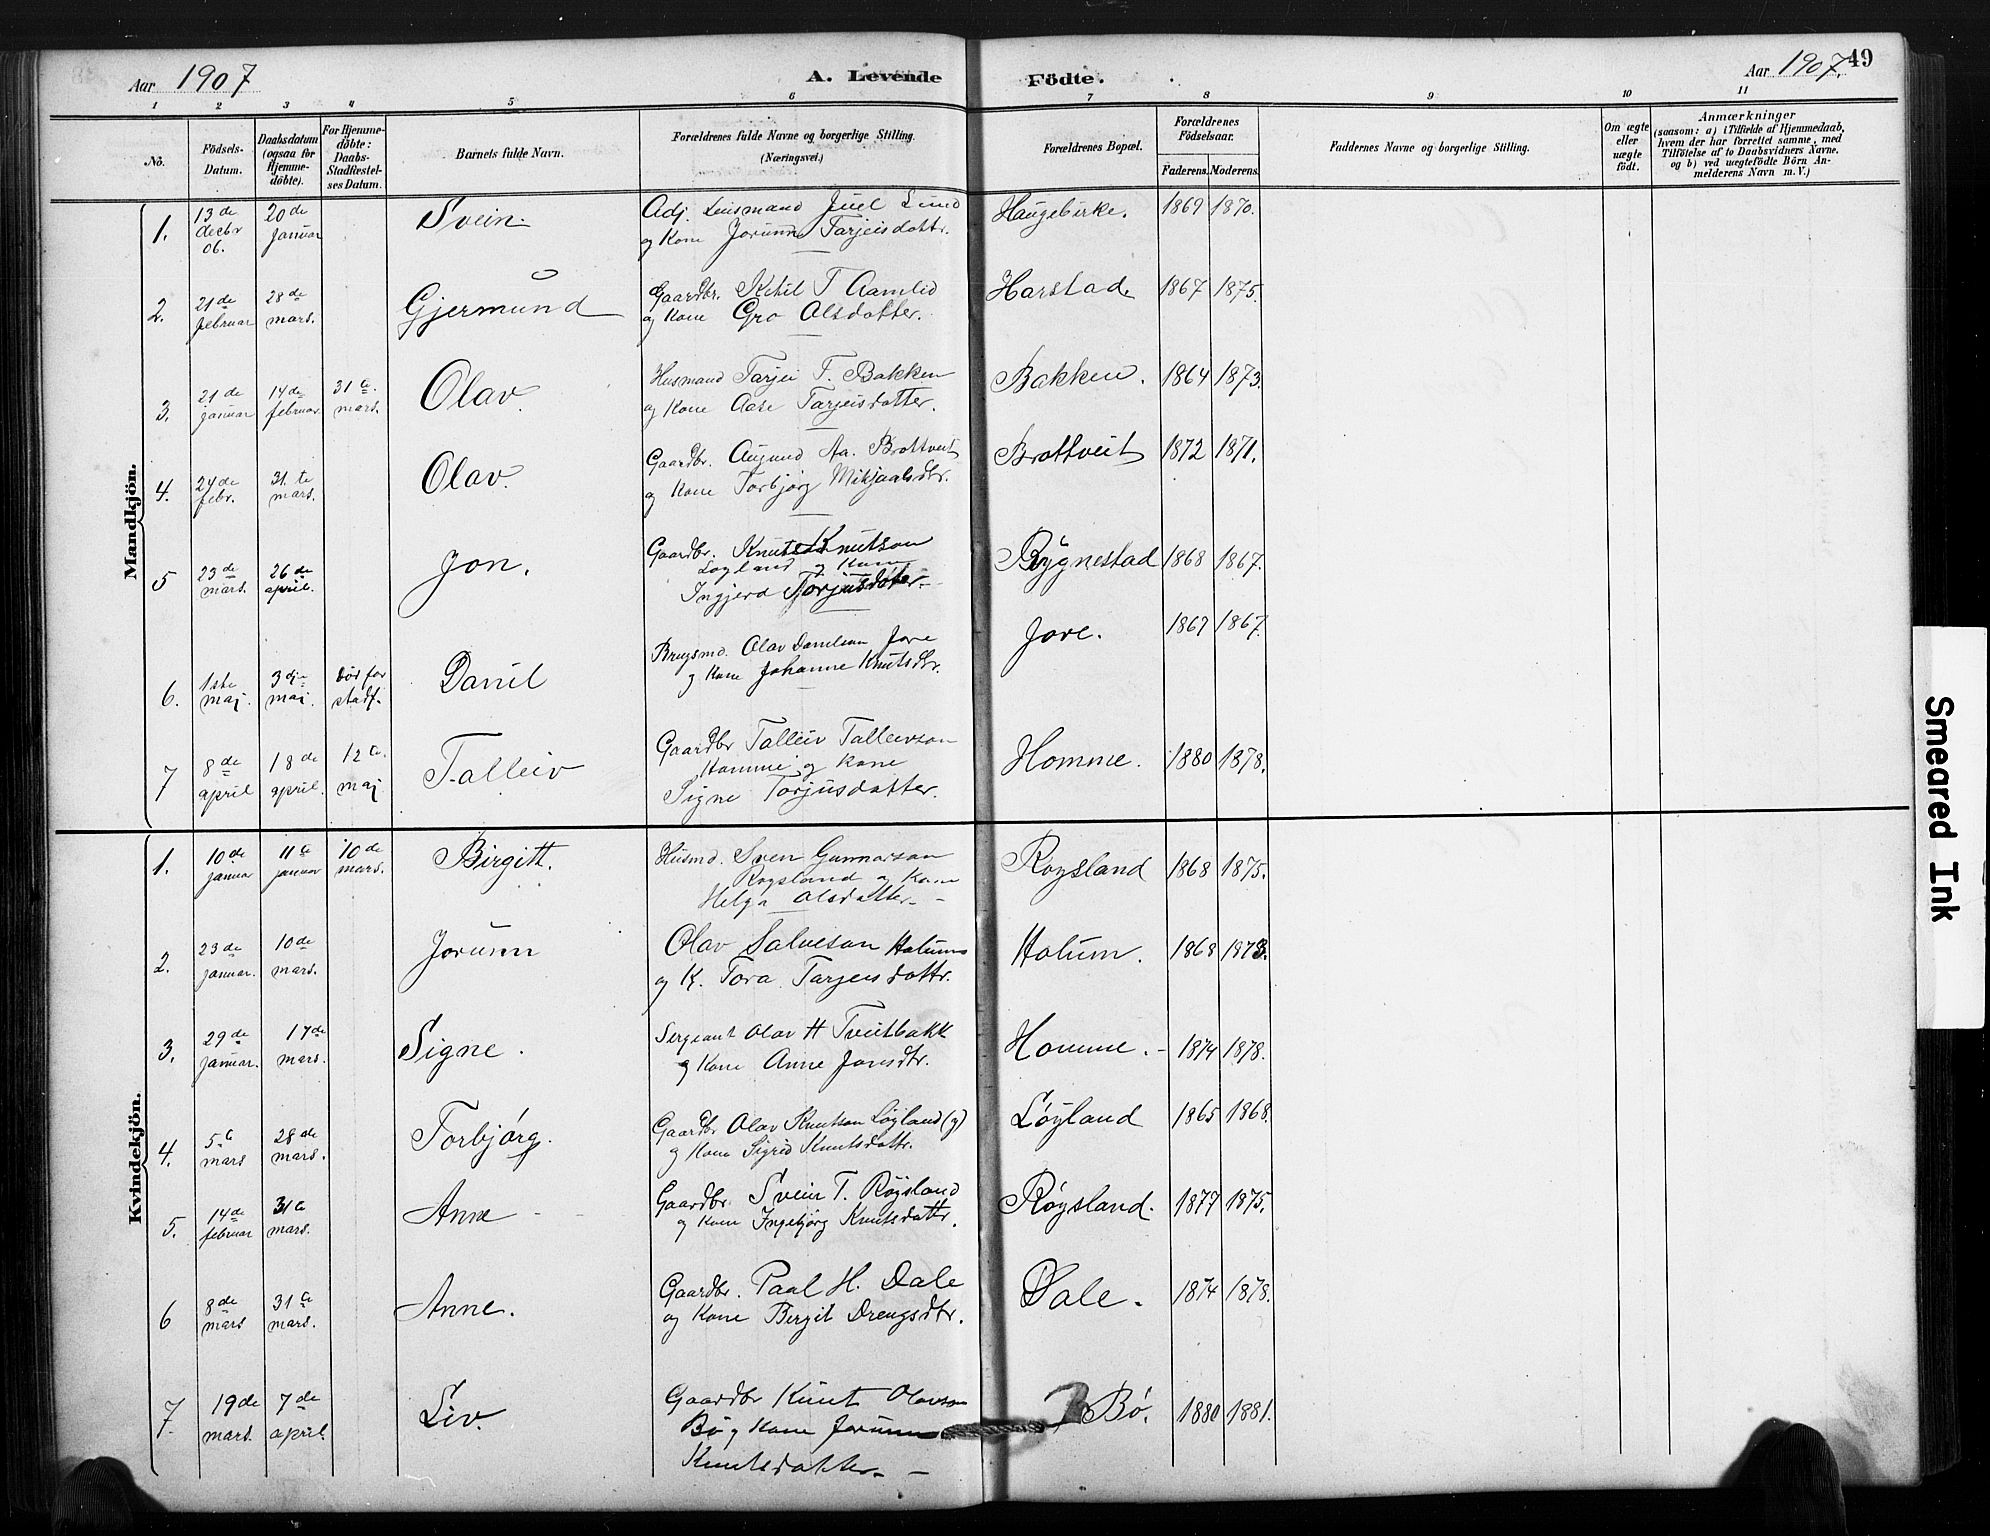 Aar 1907
A. Levende Födte.
Aar 1907.
49
1 2 3 4 5 6 7 8 9 10 11
No.
Födsels-
Datum.
Daabsdatum
(ogsaa for
Hjemme-
døbte).
For Hjemme-
døbte:
Daabs-
Stadfæstel-
ses Datum.
Barnets fulde Navn.
Forældrenes fulde Navne og borgerlige Stilling.
(Næringsvei.)
Forældrenes Bopæl.
Forældrenes
Födselsaar.
Faderens. Moderens.
Faddernes Navne og borgerlige Stilling.
Om ægte
eller
uægte
født.
Anmærkninger
(saasom: a) i Tilfælde af Hjemmedaab,
hvem der har forrettet samme, med
Tilføielse af to Daabsvidners Navne.
og b) ved uegtefödte Börn An-
melderens Navn m. V.)
Mandkjön.
1. 13de decbr 06. 20de januar Svein.
Adj. Lensmand Juel Lund
og Kone Jorunn Tarjeisdottr.
Haugebirke. 1869 1870.
2. 21de februar 28de mars. Gjermund
Gaardbr. Ketil T. Aamlid
og Kone Gro Olsdotter.
Harstad. 1867 1875.
3. 21de januar 14de februar. 31te mars. Olav.
Husmand Tarjei T. Bakken
og Kone Aase Tarjeisdotter.
Bakken. 1864 1873.
4. 24de febr. 31te mars. Olav.
Gaardbr. Augund Aa. Brottveit
og Kone Torbjørg Mikjaalsdtr.
Brottveit 1872 1871.
5 23de mars. 26de april. Jon.
Gaardbr. Knut Knutson
Løyland og Kone
Ingjerd Torjusdotter
Rygnestad 1868 1867.
6. 1ste maj. 3dje maj. død før stadf. Daniel
Brugsmd. Olav Danielson Jore
og Kone Johanne Knutsdtr.
Jore. 1867 1867.
7 8de april 18de april. 12te maj Talleiv
Gaardbr Talleiv Talleivson
Homme og Kone
Signe Torjusdotter.
Homme. 1880 1878.
Kvindekjön.
1. 10de januar 11te januar 10de mars. Birgitt.
Husmd. Sven Gunnarson
Røysland og Kone
Helga Olsdotter
Roysland 1868 1875.
2. 23de januar. 10de mars. Jorunn
Olav Salveson Hotum
og K. Tora Tarjeisdottr.
Hotum. 1868 1873.
3. 29de januar. 17de mars. Signe.
Sergeant Olav H Tveitbakk
og Kone Anne Jonsdtr.
Homme. 1874 1878.
4. 5te mars 28de mars. Torbjørg.
Gaardbr Olav Knutson Løyland (y)
og Kone Sigrid Knutsdottr.
Løyland 1865 1868.
5. 14de februar 31te mars. Anne
Gaardbr. Svein T. Røysland
og Kone Ingebjørg Knutsdottr.
Røysland. 1877 1875.
6 8de mars 31te mars. Anne.
Gaardbr. Paal H. Dale
og Kone Bergit Drengsdtr.
Dale. 1874 1878.
7. 19de mars. 7de april. Liv.
Gaardbr Knut Olavson
Bø og Kone Jorunn
Knutsdotter
Bø. 1880 1881.
Smeared Ink